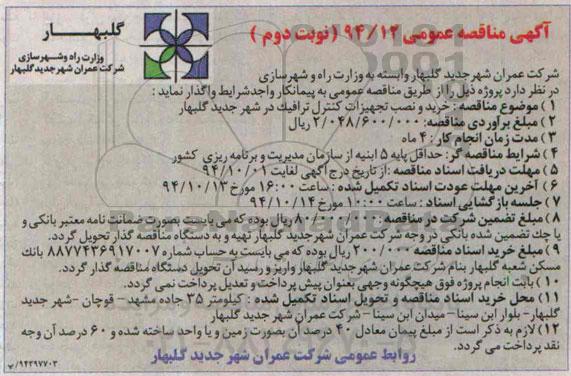 آگهی مناقصه عمومی ۹۴/۱۲ (نوبت دوم)
گلبهار
وزارت راه وشهرسازی
شرکت عمران شهر جدید گلبهار
شرکت عمران شهر جدید گلبهار وابسته به وزارت راه و شهرسازی
در نظر دارد پروژه ذیل را از طریق مناقصه عمومی به پیمانکار واجدشرایط واگذار نماید :
۱) موضوع مناقصه : خرید و نصب تجهیزات کنترل ترافیک در شهر جدید گلبهار
۲) مبلغ برآوردی مناقصه: ۲/۰۴۸/۶۰۰/۰۰۰ ریال
۳) مدت زمان انجام کار : ۴ ماه
۴) شرایط مناقصه گر: حداقل پایه ۵ ابنیه از سازمان مدیریت و برنامه ریزی کشور
۵) مهلت دریافت اسناد مناقصه :از تاریخ درج آگهی لغایت ۹۴/۱۰/۰۱
۶) آخرین مهلت عودت اسناد تکمیل شده : ساعت ۱۶:۰۰ مورخ ۹۴/۱۰/۱۳
۷) جلسه بازگشایی اسناد : ساعت ۱۰:۰۰ مورخ ۹۴/۱۰/۱۴
۸) مبلغ تضمین شرکت در مناقصه : ۸۰/۰۰۰/۱۰۰ ریال بوده که می بایست بصورت ضمانت نامه معتبر بانکی و
یا چک تضمین شده بانکی در وجه شرکت عمران شهر جدید گلبهار تهیه و به دستگاه مناقصه گذار تحویل گردد.
۹) مبلغ خرید اسناد مناقصه ۲۰۰/۰۰۰ ریال بوده که می بایست به حساب شماره ۸۸۷۷۴۳۶۹۱۷۰۰۷ بانک
مسکن شعبه گلبهار بنام شرکت عمران شهر جدید گلبهار واریز و رسید آن تحویل دستگاه مناقصه گذار گردد.
۱۰) بابت انجام پروژه فوق هیچگونه وجهی بعنوان پیش پرداخت و تعدیل پرداخت نمی گردد.
۱۱) محل خرید اسناد مناقصه و تحویل اسناد تکمیل شده : کیلومتر ۳۵ جاده مشهد - قوچان -شهر جدید
گلبهار- بلوار ابن سینا – میدان ابن سینا – شرکت عمران شهر جدید گلبهار
۱۲) لازم به ذکر است از مبلغ پیمان معادل ۴۰ درصد آن بصورت زمین و یا واحد ساخته شده و ۶۰ درصد آن وجه
نقد پرداخت می گردد.
روابط عمومی شرکت عمران شهر جدید گلبهار
۹۴۳۹۷۷۰۳/